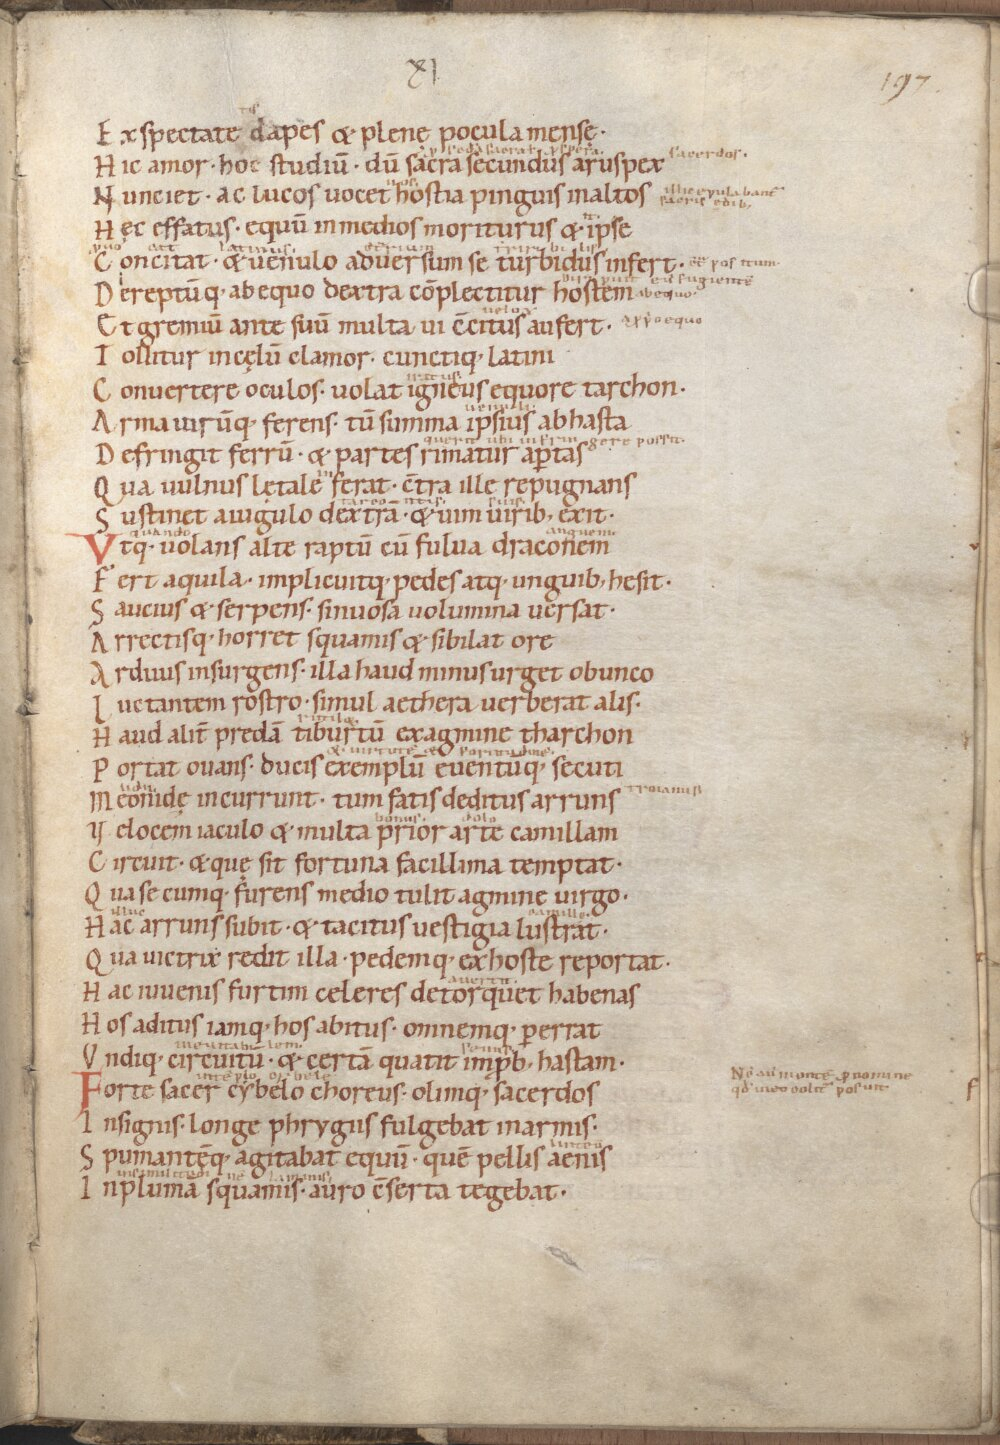 XI
197
Exspectate dapes & plenę pocula mensę·
Hic amor· hoc studiū· dū sacra secundus aruspex sacerdos·
Nunciet· ac lucos uocet hostia pinguis inaltos
Hęc effatus· equū inmedios moriturus & ipse
Concitat· & uenulo aduersum se turbidus infert·
Dereptūq· abequo dextra cōplectitur hostem abequo·
Et gremiū ante suū multa ui c̄citus aufert·
Tollitur incęlū clamor· cunctiq· latini
Conuertere oculos· uolat igneus equore tarchon·
Arma uirūq· ferens· tū summa ipsius abhasta
Defringit ferrū· & partes rimatur aptas
Qua uulnus lętale ferat· c̄tra ille repugnans
Sustinet aiugulo dextrā· & uim uirib, exit·
quando
Vtq· uolans alte raptū cū fulua draconem
Fert aquila· implicuitq· pedes atq· unguib, hesit·
Saucius & serpens· sinuosa uolumina uersat·
Arrectisq· horret squamis & sibilat ore
Arduus insurgens· illa haud minus urget obunco
Luctantem rostro· simul aethera uerberat alis·
Haud alit̄ predā tiburtū exagmine tharchon
Portat ouans· ducis exemplū euentūq· secuti
Męonidę incurrunt· tum fatis deditus arruns troianus
bonus· dolo
Uelocem iaculo & multa prior arte camillam
Circuit· & quę sit fortuna facillima temptat·
Qua se cumq· furens medio tulit agmine uirgo·
illuc
Hac arruns subit· & tacitus uestigia lustrat·
Qua uictrix redit illa· pedemq· exhoste reportat·
Hac iuuenis furtim celeres detorquet habenas
Hos aditus iamq· hos abitus· omnemq· perrat
Vndiq· circuitū· & certā quatit impb, hastam·
Forte sacer cybelo choreus· olimq· sacerdos
Insignis· longe phrygiis fulgebat inarmis·
Spumantēq· agitabat equū· quē pellis aenis
Inplumā squamis· auro c̄serta tegebat·